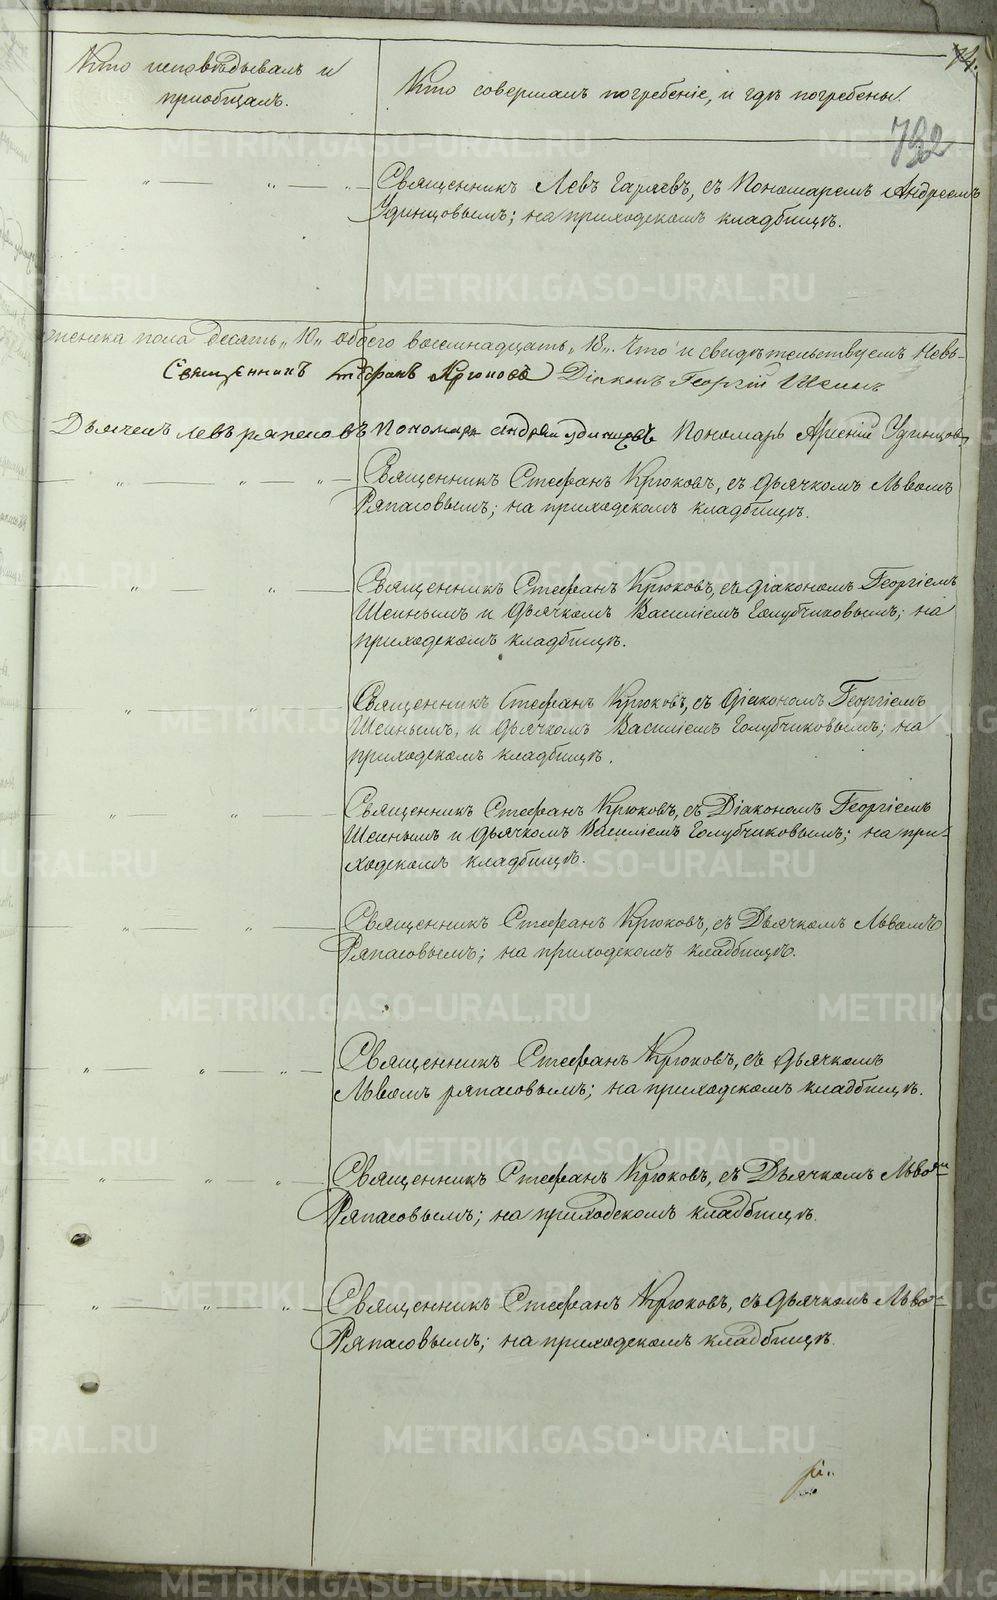 74.
Кто исповѣдывалъ и
приобщалъ.
Кто совершалъ погребеніе, и гдѣ погребены.
792
Священникъ Левъ Гаряевъ, съ Пономаремъ Андреемъ
Удинцовымъ; на приходскомъ кладбищѣ.
женска пола десять „10„ обоего восемнадцать „18„. Что и свидѣтельствуемъ Невь-
Священникъ Стефанъ Крюковъ Діаконъ Георгій Шеинъ
Дьячекъ Левъ Ряпасовъ Пономарь Андрей Удинцовъ Пономарь Арсеній Удинцовъ
Священникъ Стефанъ Крюковъ, съ дьячкомъ Львомъ
Ряпасовымъ; на приходскомъ кладбищѣ.
Священникъ Стефанъ Крюковъ, съ діакономъ Георгіемъ
Шеинымъ и дьячкомъ Василіемъ Голубчиковымъ; на
приходскомъ кладбищѣ.
Священникъ Стефанъ Крюковъ, съ діакономъ Георгіемъ
Шеинымъ, и дьячкомъ Василіемъ Голубчиковымъ; на
приходскомъ кладбищѣ.
Священникъ Стефанъ Крюковъ, съ Діакономъ Георгіемъ
Шеинымъ и дьячкомъ Василіемъ Голубчиковымъ; на при-
ходскомъ кладбищѣ.
Священникъ Стефанъ Крюковъ, съ Дьячкомъ Львомъ
Ряпасовымъ; на приходскомъ кладбищѣ.
Священникъ Стефанъ Крюковъ, съ дьячкомъ
Львомъ Ряпасовымъ; на приходскомъ кладбищѣ.
Священникъ Стефанъ Крюковъ, съ Дьячкомъ Львомъ
Ряпасовымъ; на приходскомъ кладбищѣ.
Священникъ Стефанъ Крюковъ, съ дьячкомъ Льво-
Ряпасовымъ; на приходскомъ кладбищѣ.
METRIKI.GASO-URAL.RU